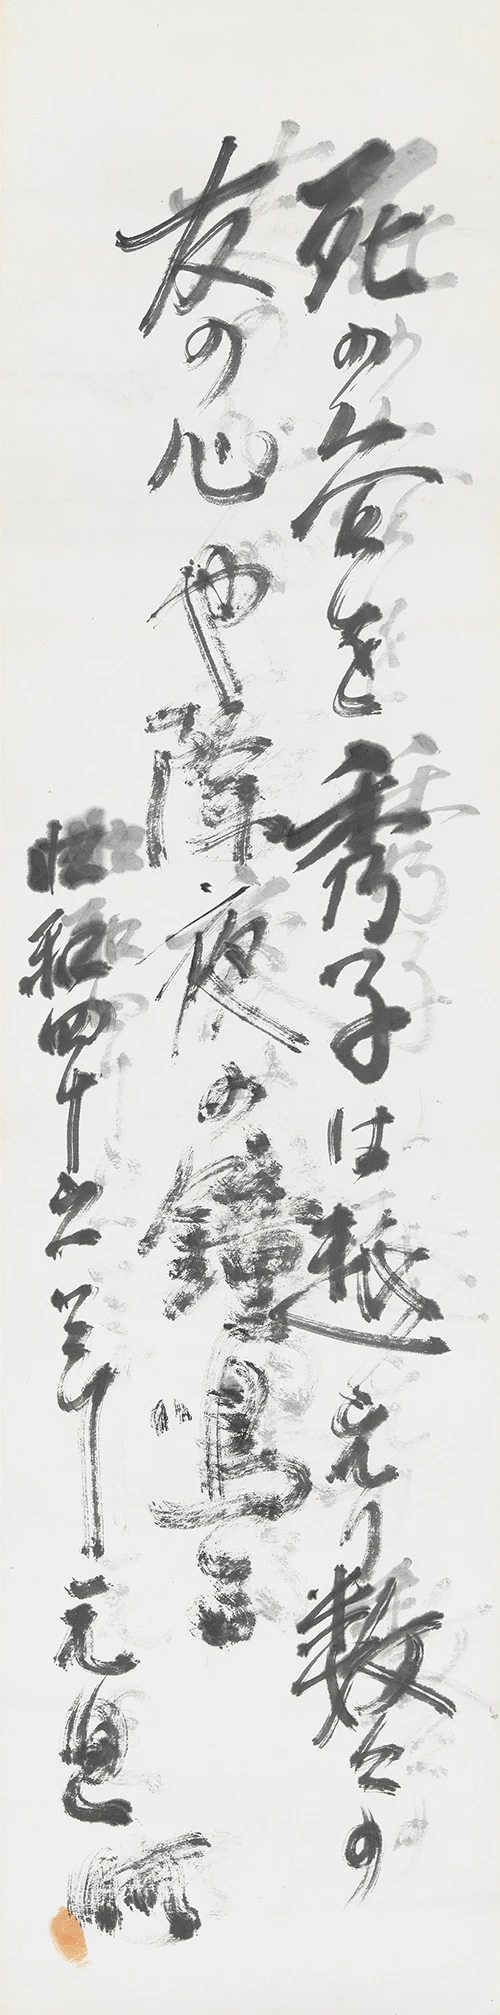 死の谷を秀子は越えり数々の
友の心や除夜の鐘鳴る
昭和四十五年元旦